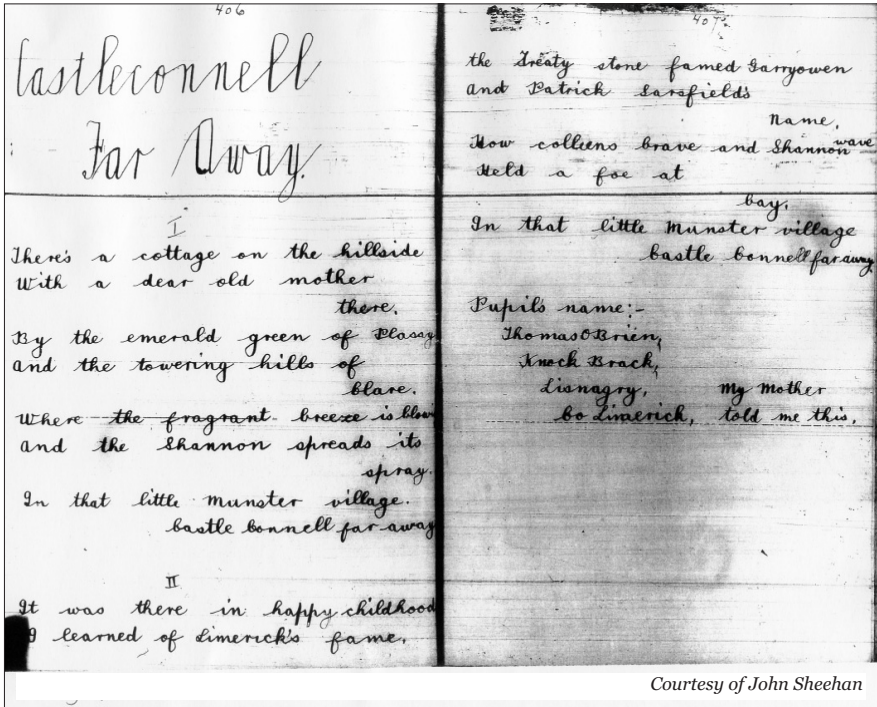 406
Castleconnell
Far Away.
I
There's a cottage on the hillside
With a dear old mother
there.
By the emerald green of Plassy
and the towering hills of
Clare.
Where the fragrant breeze is blow
and the Shannon spreads its
spray.
In that little Munster village.
Castle Connell far away
II
It was there in happy childhood
I learned of Limerick's fame.
407
the Treaty stone famed Garryowen
and Patrick Sarsfield's
Name.
How colliens brave and Shannon wave
Held a foe at
bay.
In that little Munster village
Castle Connell far away.
Pupil's name:-
Thomas O Brien,
Knock Brack,
Lisnagry, My Mother
Co Limerick, told me this.
Courtesy of John Sheehan